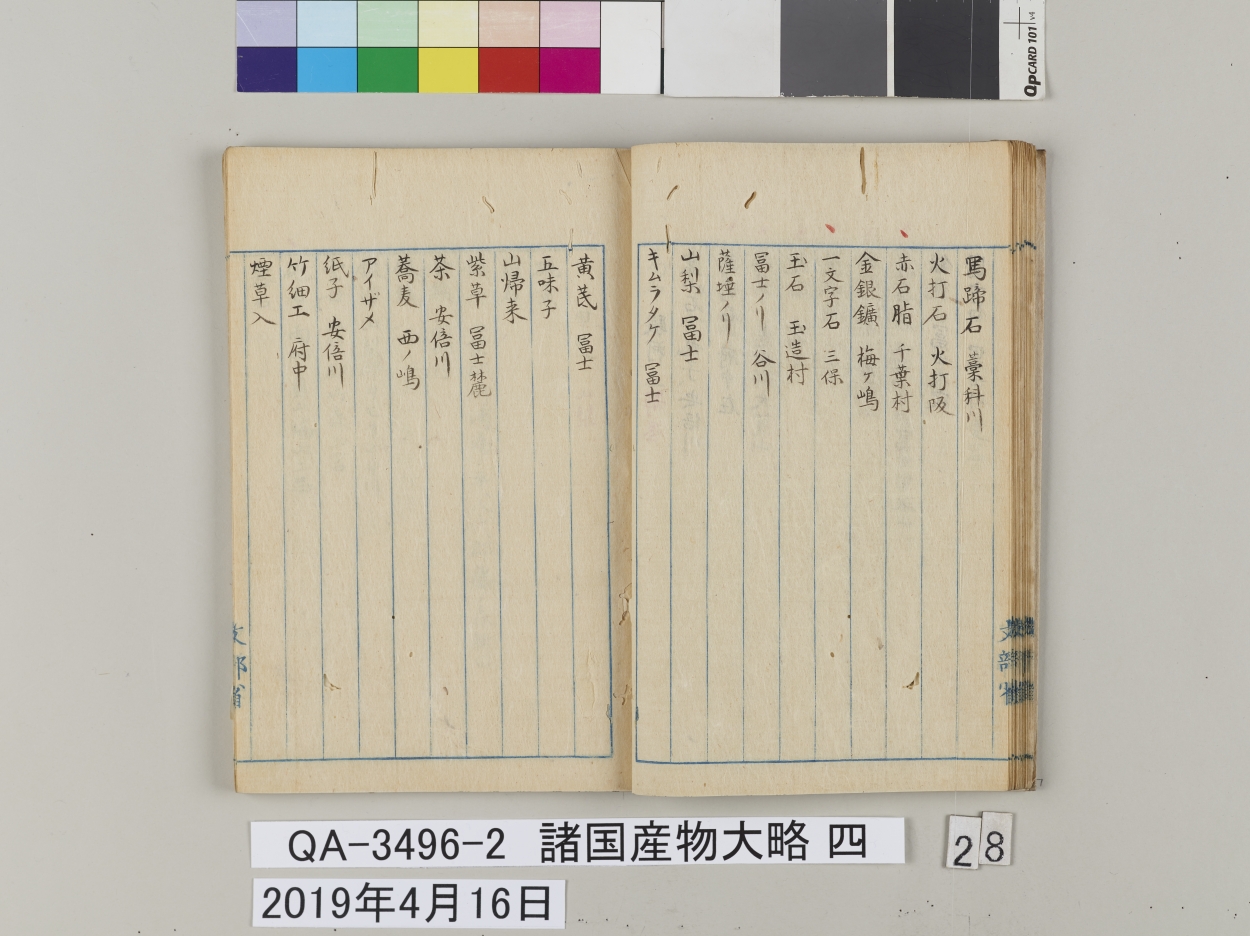 馬蹄石 藁科川
火打石 火打阪
赤石脂 千葉村
金銀鑛 梅ケ嶋
一文字石 三保
玉石 玉造村
冨士ノリ 谷川
薩埵ノリ
山梨 冨士
キムラタケ 冨士
黄芪 冨士
五味子
山帰来
紫草 冨士麓
茶 安倍川
蕎麦 西ノ嶋
アイザメ
紙子 安倍川
竹細工 府中
煙草入
文部省
文部省
QA-3496-2 諸国産物大略 四
28
2019年4月16日
QpCARD 101 v4